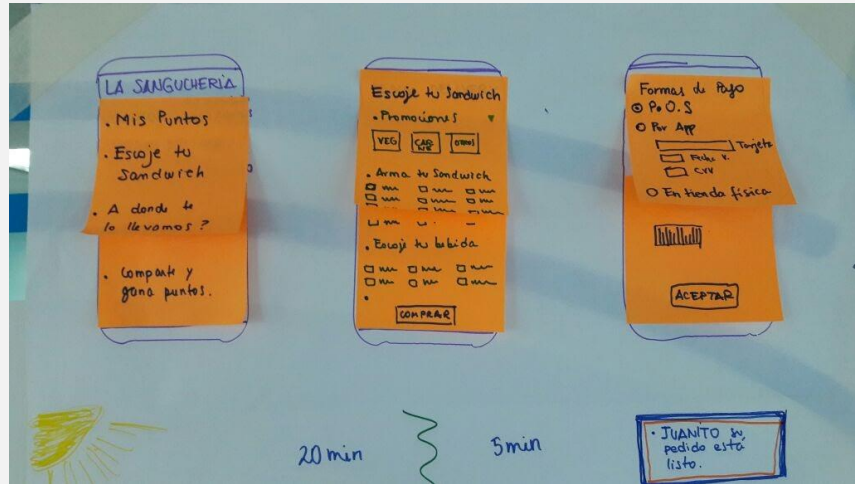 LA SANGUCHERIA
. Mis Puntos
. Escoje tu
Sandwich
. A donde te
lo llevamos?
. Comparte y
gana puntos.
Escoje tu Sandwich
. Promociones
VEG
CAR
NE
OTROS
. Arma tu Sandwich
. Escoje tu bebida
COMPRAR
Formas de Pago
P.O.S
Por App
Tarjeta
Fecha V.
CVV
En tienda física
ACEPTAR
20 min
5 min
. JUANITO su
pedido está
listo.